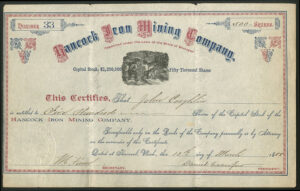 NUMBER 33
500 SHARES
Hancock Iron Mining Company.
Capital Stock, $1,250,000
Fifty Thousand Shares
This Certifies, That John
is entitled to Five Hundred Shares of the Capital Stock of the
HANCOCK IRON MINING COMPANY.
Transferable only on the Books of the Company personally or by Attorney
on the surrender of this Certificate.
Dated at Mich. this 10th day of March